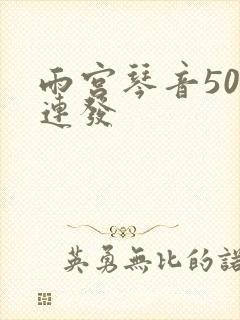 雨宮琴音50
連發
英勇無比的諾